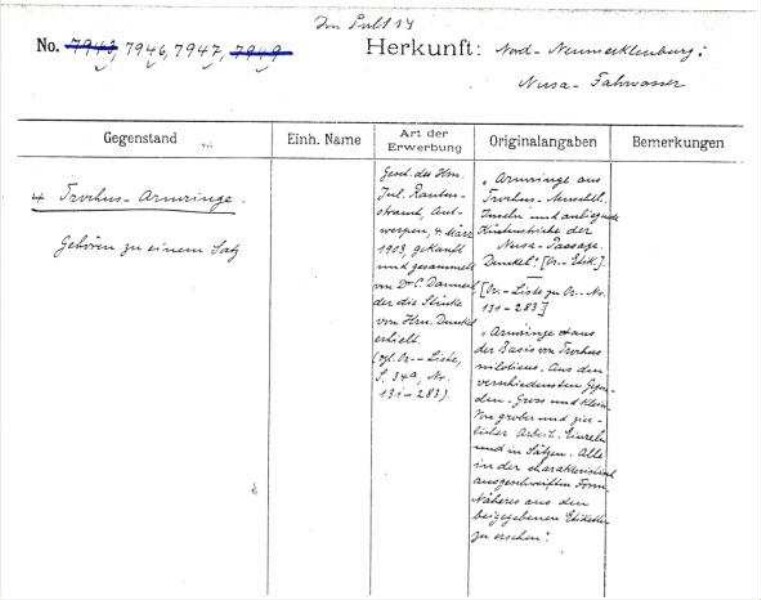 Im Pult 14
No. 7943, 7946, 7947, 7949 Herkunft: Nord-Neumecklenburg:
Nusa-Fahrwasser
Gegenstand
Einh. Name
Art der
Erwerbung
Originalangaben
Bemerkungen
4 Trochus-Armringe.
Gehören zu einem Satz
Gesch. des Hrn.
Jul. Rauten-
strauch, Ant-
werpen, 4. März
1903, gekauft
und gesammelt
von Dr C. Danneil,
der die Stücke
von Hrn. Dunkel
erhielt.
(vgl. Or.-Liste,
S. 34a, Nr.
131-283).
"Armringe aus
Trochus-Muschel.
Inseln und anliegende
Küstenstriche der
Nusa-Passage.
Dunkel". [Or.-Etik.].
[Or.-Liste zu Or.-Nr.
131-283]
"Armringe aus
der Basis von Trochus
niloticus. Aus den
verschiedensten Gegen-
den. Gross und klein.
Von grober und zier-
licher Arbeit. Einzeln
und in Sätzen. Alle
in der charakteristisch
ausgeschweiften Form.
Näheres aus den
beigegebenen Etiketten
zu ersehen".